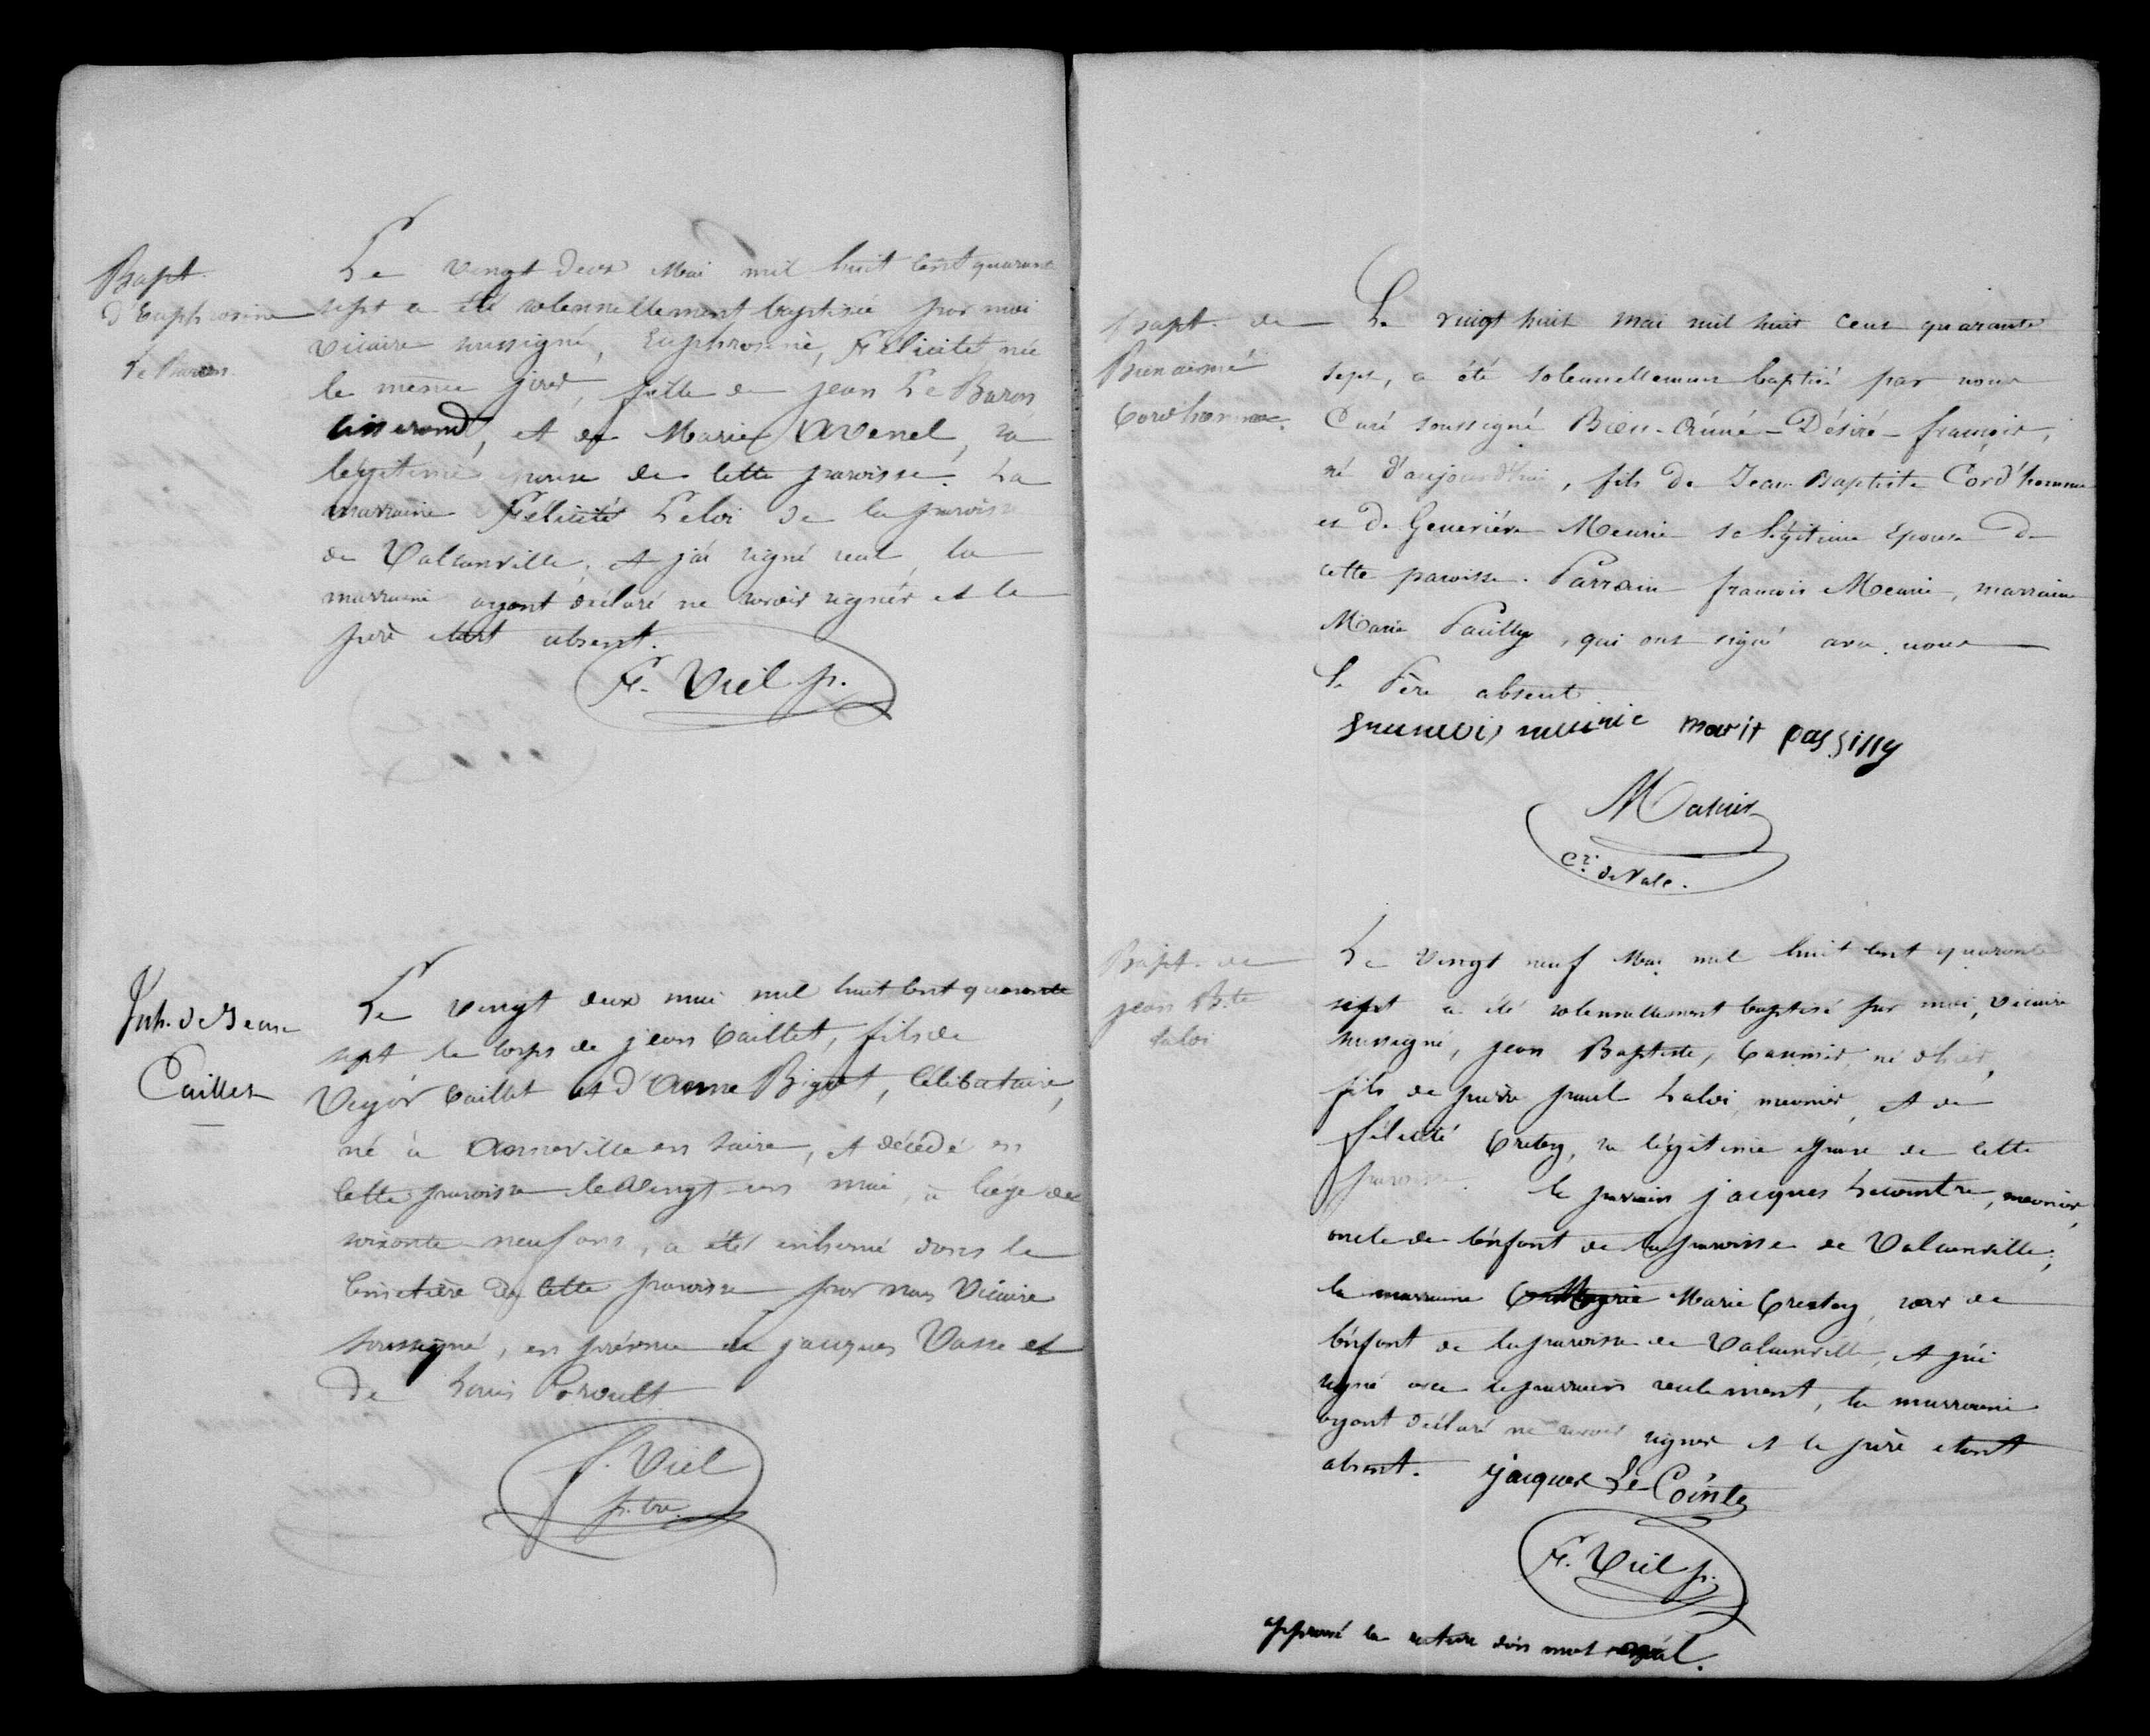 Bapt.
d'Euphrosine
Le Baron
Le vingt deux Mai mil huit cent quarante
sept a été solennellement baptisée par moi
vicaire sussigné, Euphrosine, Félicité née
le même jour, fille de jean Le Baron
tisserand, et de Marie Avenel, sa
légitime epouse de cette paroisse. La
marraine Félicité Leloi de la paroisse
de Valcanville. et j'ai signé seul, la
marraine ayant déclaré ne savoir signer et le
père etant absent.
F. Viel p.
Inh. de Jean
Caillet
Le vingt deux mai mil huit cent quarante
sept le corps de jean Caillet, fils de
Caillet et d'Anne Bigot, célibataire,
né à Anneville en Saire, et décédé en
cette paroisse le vingt un mai, à l'âge de
soixante neuf ans, a été inhumé dans le
Cimetière de cette paroisse par nous Vicaire
soussigné, en présence de jacques Vasse et
de Louis
F. Viel
p.tre
Bapt. de
Bien aimé
Cord'homme.
Le vingt huit mai mil huit cent quarante
sept, a été solennellement baptisé par nous
Curé soussigné Bien-Aimé-Désiré-françois,
né d'aujourd'hui, fils de Jean Baptiste Cord'homme
et de Geneviève Meunie sa légitime épouse de
cette paroisse. Parrain françois Meunie, marraine
Marie Pasilly, qui ont signé avec nous
le Père absent
francois meunie marie passilly
cé. de Valc.
Bapt. de
jean B.te
Laloi
Le vingt neuf Mai mil huit cent quarante
sept a été solennellement baptisé par moi, vicaire
sussigné, jean Baptiste, Casimir, né d'hier,
fils de pierre paul Laloi, meunier, et de
félicité Crestey, sa légitime epouse de cette
paroisse. le parrain jacques Lecointre, meunier,
oncle de l'enfant de la paroisse de Valcanville;
la marraine Marie Crestey, sœur de
l'enfant de la paroisse de Valcanville, et j'ai
signé avec le parrain seulement, la marraine
ayant déclaré ne savoir signer et le père etant
absent. jacques Le Cointe
F. Viel p.
approuvé la rature d'un mot